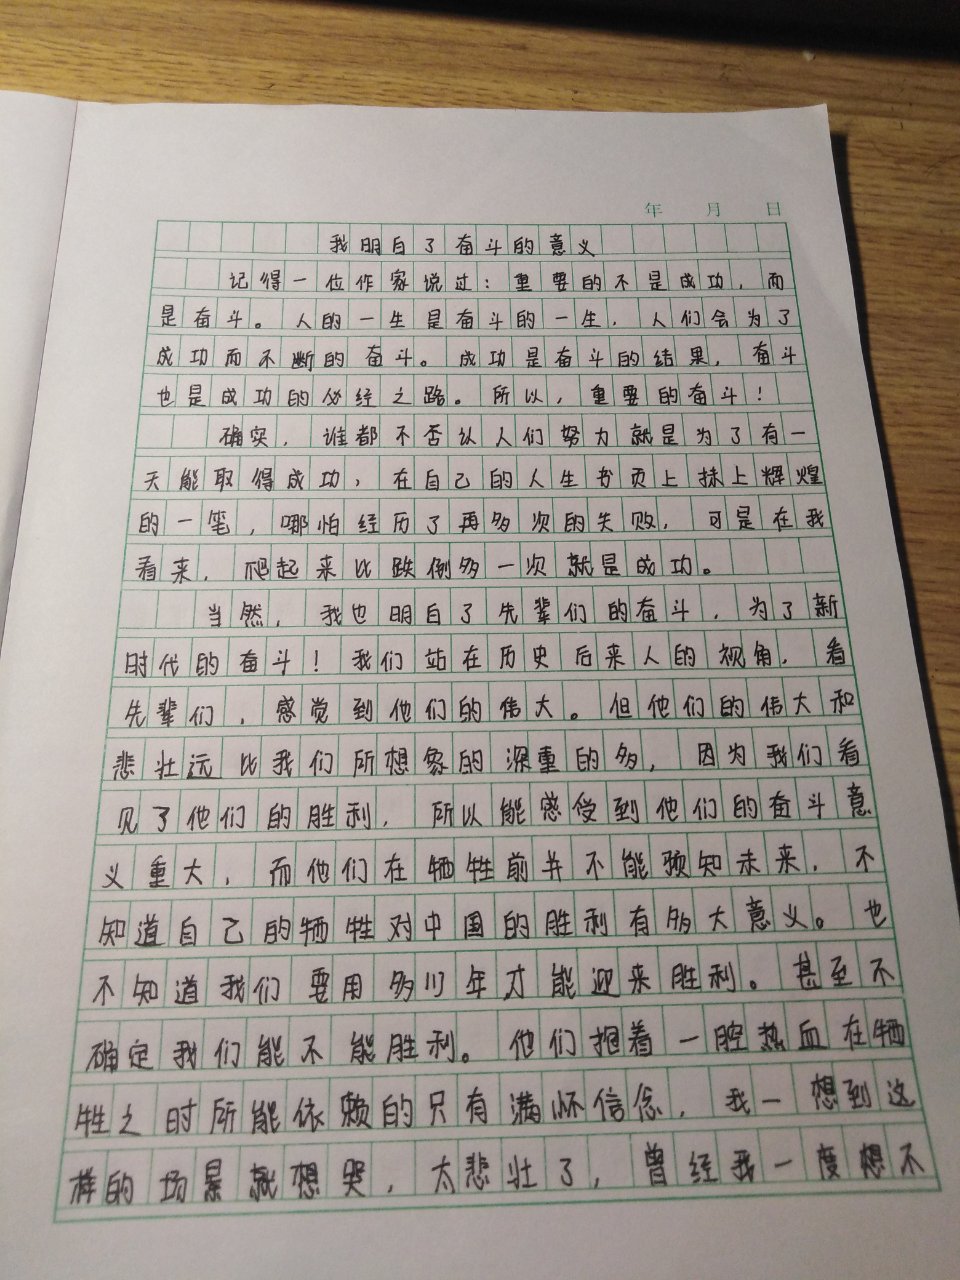 年 月 日
我明白了奋斗的意义
记得一位作家说过：重要的不是成功，而
是奋斗。人的一生是奋斗的一生，人们会为了
成功而不断的奋斗。成功是奋斗的结果，奋斗
也是成功的必经之路。所以，重要的奋斗！
确实，谁都不否认人们努力就是为了有一
天能取得成功，在自己的人生书页上抹上辉煌
的一笔，哪怕经历了再多次的失败，可是在我
看来，爬起来比跌倒多一次就是成功。
当然，我也明白了先辈们的奋斗，为了新
时代的奋斗！我们站在历史后来人的视角，看
先辈们，感觉到他们的伟大。但他们的伟大和
悲壮远比我们所想象的深重的多，因为我们看
见了他们的胜利，所以能感受到他们的奋斗意
义重大，而他们在牺牲前并不能预知未来，不
知道自己的牺牲对中国的胜利有多大意义。也
不知道我们要用多少年才能迎来胜利。甚至不
确定我们能不能胜利。他们抱着一腔热血在牺
牲之时所能依赖的只有满怀信念，我一想到这
样的场景就想哭，太悲壮了，曾经我一度想不